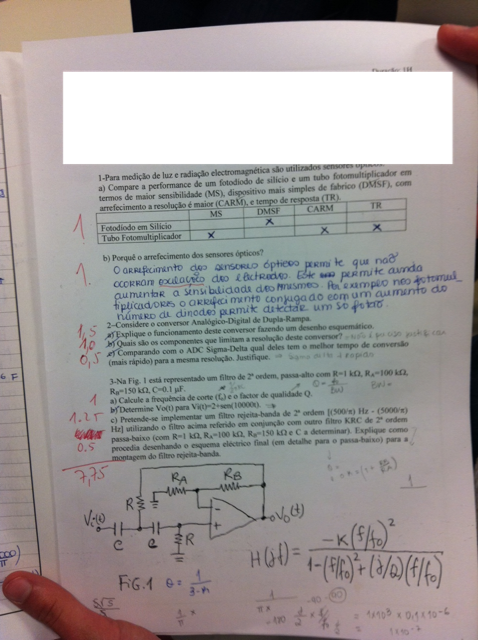 Duração: 1H
1-Para medição de luz e radiação electromagnética são utilizados sensores ópticos.
a) Compare a performance de um fotodíodo de silício e um tubo fotomultiplicador em
termos de maior sensibilidade (MS), dispositivo mais simples de fabrico (DMSF), com
arrefecimento a resolução é maior (CARM), e tempo de resposta (TR).
MS DMSF CARM TR
Fotodíodo em Silício x
1 Tubo Fotomultiplicador x x x
b) Porquê o arrefecimento dos sensores ópticos?
1. O arrefecimento dos sensores ópticos permite que não
ocorram oscilações dos electrodos. Este permite ainda
aumentar a sensibilidade dos mesmos. Por exemplo nos fotomul
tiplicadores o arrefecimento conjugado com um aumento do
número de dínodos permite detectar um só fotão.
2-Considere o conversor Analógico-Digital de Dupla-Rampa.
1,5 a) Explique o funcionamento deste conversor fazendo um desenho esquemático.
1,0 b) Quais são os componentes que limitam a resolução deste conversor?
0,5 c) Comparando com o ADC Sigma-Delta qual deles tem o melhor tempo de conversão
(mais rápido) para a mesma resolução. Justifique.
3-Na Fig. 1 está representado um filtro de 2ª ordem, passa-alto com R=1 kΩ, RA=100 kΩ,
RB=150 kΩ, C=0.1 µF.
1 a) Calcule a frequência de corte (fo) e o factor de qualidade Q.
1.25 b) Determine Vo(t) para Vi(t)=2+sen(10000t).
c) Pretende-se implementar um filtro rejeita-banda de 2ª ordem [(500/π) Hz - (5000/π)
Hz] utilizando o filtro acima referido em conjunção com outro filtro KRC de 2ª ordem
0.5 passa-baixo (com R=1 kΩ, RA=100 kΩ, RB=150 kΩ e C a determinar). Explique como
procedia desenhando o esquema eléctrico final (em detalhe para o passa-baixo) para a
montagem do filtro rejeita-banda.
7,75
1
RA RB
R
Vi(t) C C R - + Vo(t)
H(jf) = -K(f/fo)²
1-(f/fo)²+(j/Q)(f/fo)
FIG.1 Q = 1
3-K